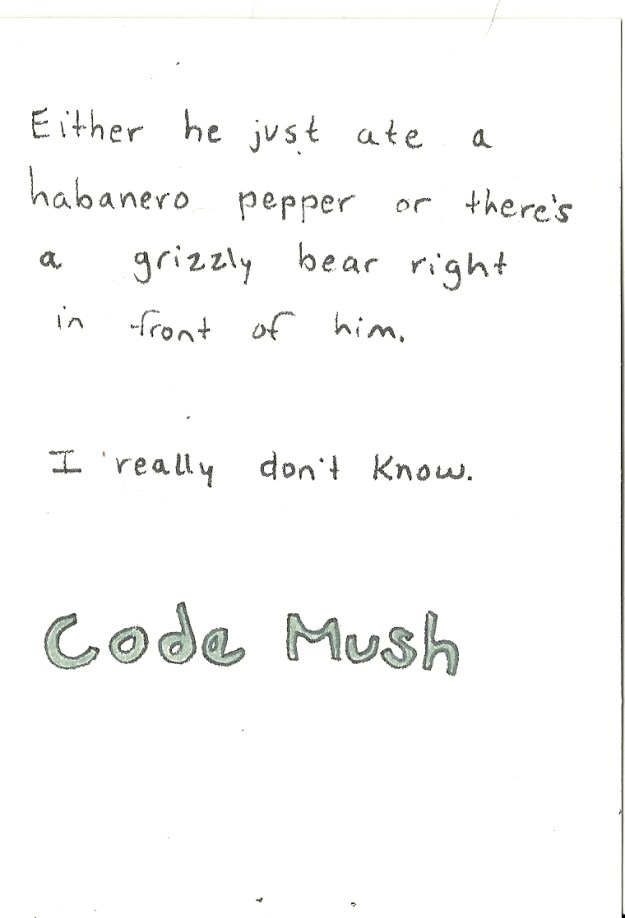 Either he just ate a
habanero pepper or there's
a grizzly bear right
in front of him.
I really don't know.
Code Mush